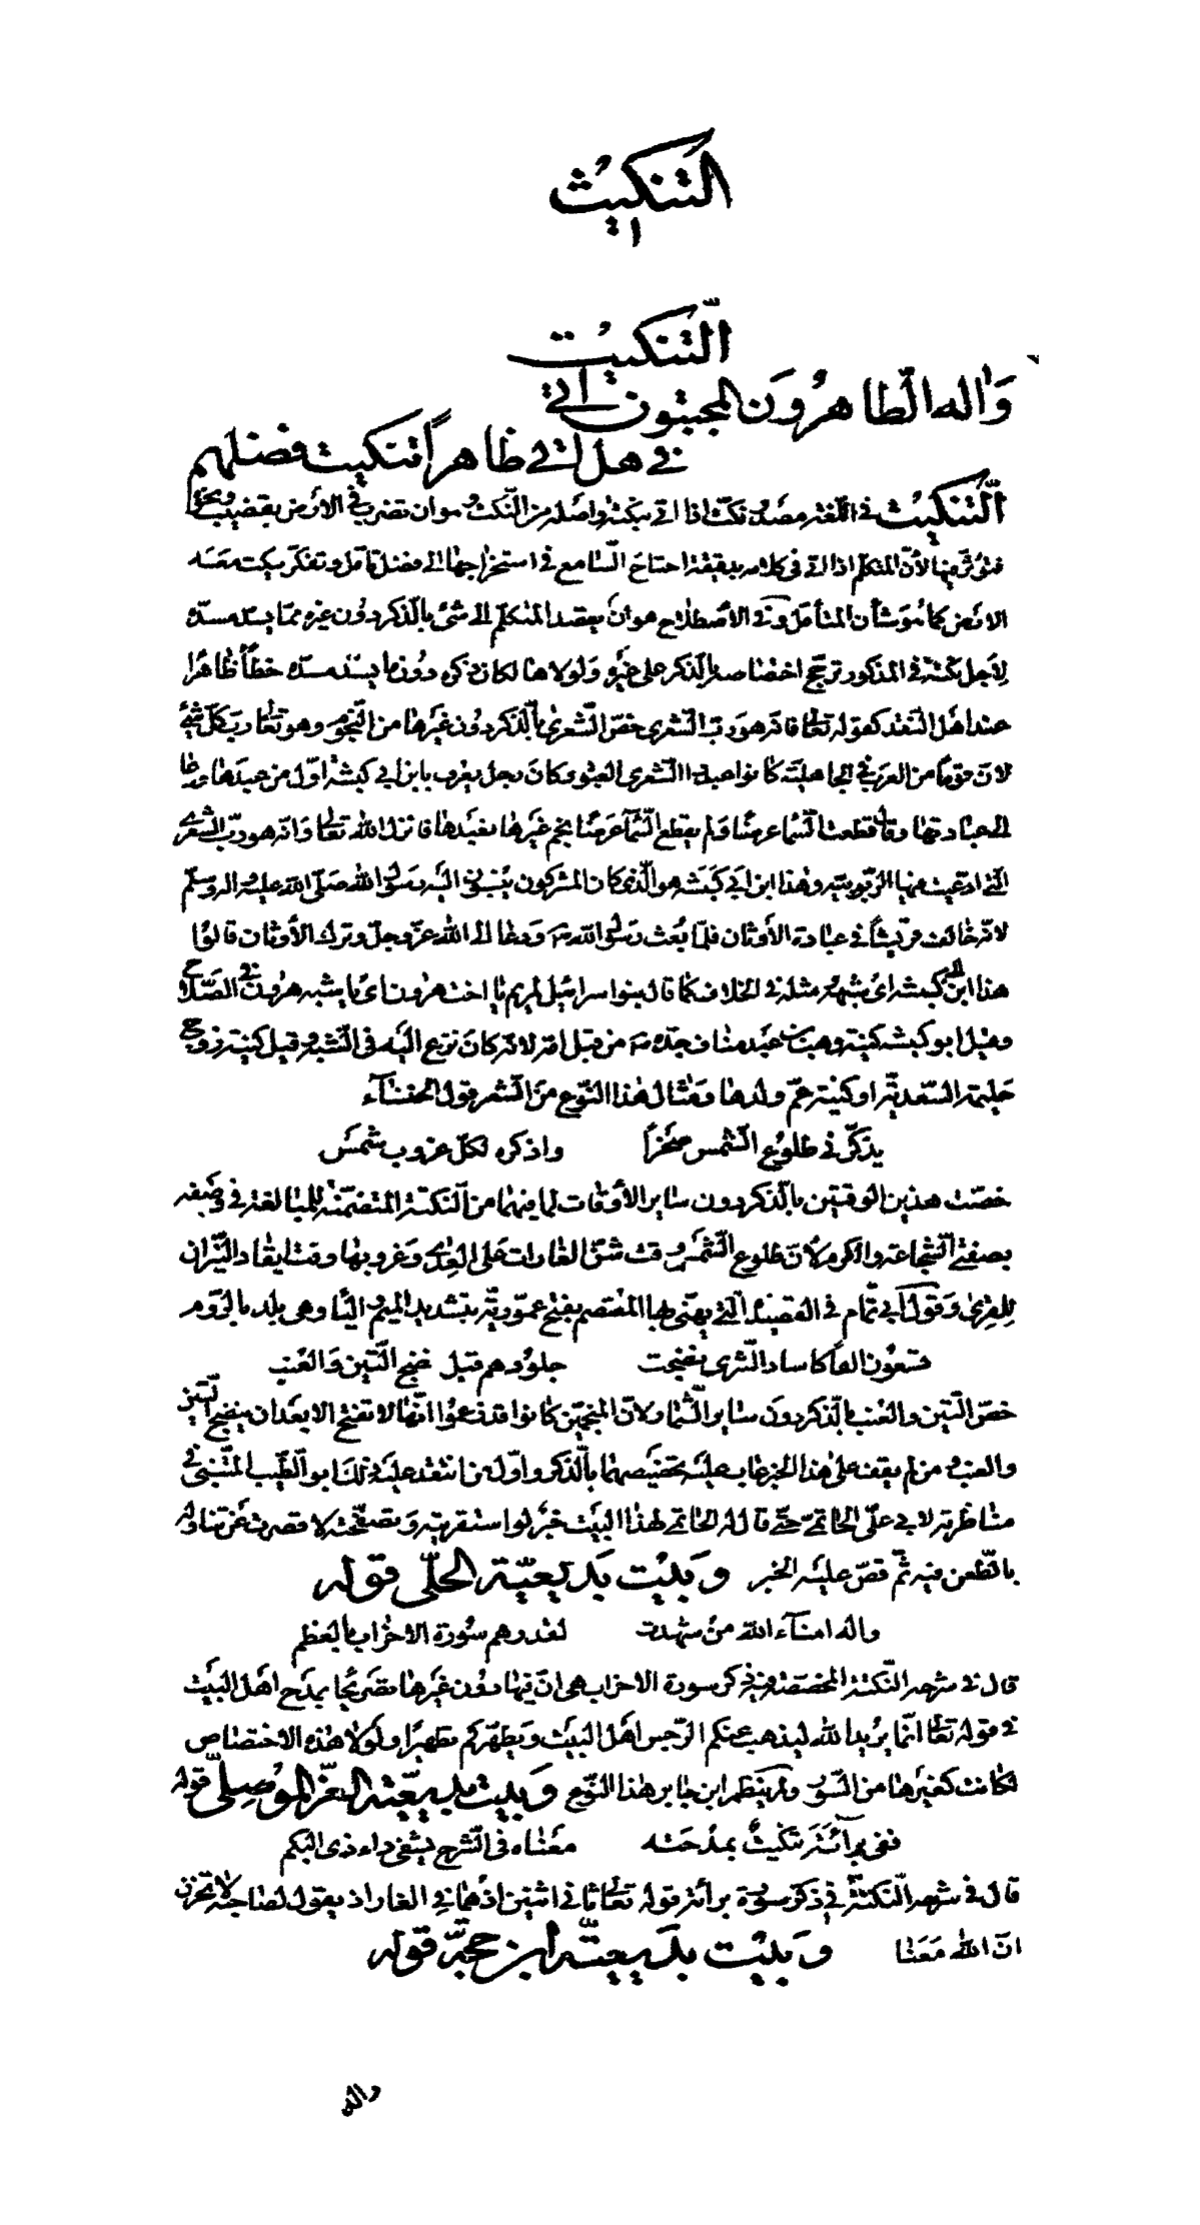 التنكيت
التنكيت
واله الطاهرون المجتبون اتى
فى هل اتى ظاهرًا تنكيت فضلهم
التنكيت فى اللغة مصدر نكّت اذا اتى بنكتة واصله من النكت وهو ان تضرب فى الارض بقضيب ونحوه
فتؤثر فيها لأن المتكلم اذا اتى فى كلامه بدقيقة احتاج السامع فى استخراجها الى فضل تأمل وتفكر ينكت معه
الارض كما هو شأن المتأمل وفى الاصطلاح هو ان يقصد المتكلم الى شئ بالذكر دون غيره مما يسد مسده
لأجل نكتة فى المذكور ترجح اختصاصه بالذكر على غيره ولولاها لكان ذكره دون ما يسد مسده خطأ ظاهرا
عند اهل النقد كقوله تعالى وانه هو رب الشعرى خص الشعرى بالذكر دون غيرها من النجوم وهو تعالى رب كل شئ
لان قوما من العرب فى الجاهلية كانوا عبدوا الشعرى العبور وكان رجل يعرف بابن ابى كبشة اول من عبدها ودعا
الى عبادتها وقال قطعت السماء عرضا ولم يقطع السماء عرضا نجم غيرها فعبدها فانزل الله تعالى وانه هو رب الشعرى
التى ادعيت فيها الربوبية وهذا ابن ابى كبشة هو الذى كان المشركون ينسبون اليه رسول الله صلى الله عليه واله وسلم
لانه خالف قريشا فى عبادة الأوثان فلما بعث رسول الله ص ودعا الى الله عز وجل وترك الأوثان قالوا
هذا ابن ابى كبشة اى شبهه ومثله فى الخلاف كما قال بنوا سرائيل لمريم يا اخت هرون اى يا شبه هرون فى الصلاح
وقيل ابو كبشة كنية وهب بن عبد مناف جده ص من قبل امه لانه كان نزع اليه فى الشبه وقيل كنية زوج
حليمة السعدية او كنية عم ولدها ومثال هذا النوع من الشعر قول الخنساء
يذكرنى طلوع الشمس صخرًا واذكره لكل غروب شمس
خصت هذين الوقتين بالذكر دون ساير الأوقات لما فيهما من النكتة المتضمنة للمبالغة فى وصفه
بصفتى الشجاعة والكرم لأن طلوع الشمس وقت شن الغارات على العدى وغروبها وقت ايقاد النيران
للقرى وقول ابى تمام فى القصيدة التى يهنى بها المعتصم بفتح عمورية بتشديد الميم والياء وهى بلد بالروم
تسعون الفا كاساد الشرى نضجت جلودهم قبل نضج التين والعنب
خص التين والعنب بالذكر دون ساير الثمار لان المنجمين كانوا قد زعموا انها لا تفتح الا بعد ان ينضج التين
والعنب ومن لم يقف على هذا الخبر عاب عليه تخصيصهما بالذكر واول من انتقد عليه ذلك ابو الطيب المتنبى فى
مناظرته لابى على الحاتمى حتى قال له الحاتمى لهذا البيت خبر لو استقريته وتصفحته لاقصرت عن تناوله
بالطعن فيه ثم قص عليه الخبر وبيت بديعية الحلى قوله
واله امناء الله من شهدت لقدرهم سورة الاحزاب بالعظم
قال فى شرحه النكتة المخصصة فى ذكر سورة الاحزاب هى ان فيها دون غيرها تصريحا بمدح اهل البيت
فى قوله تعالى انما يريد الله ليذهب عنكم الرجس اهل البيت ويطهركم تطهيرا ولولا هذه الاختصاص
لكانت كغيرها من السور ولم ينظم ابن جابر هذا النوع وبيت بديعية العز الموصلى قوله
ففى برآئة تنكيت بمدحته معناه فى الشرح يشفى داء ذى البكم
قال فى شرحه النكتة فى ذكر سورة برائة قوله تعالى ثانى اثنين اذ هما فى الغار اذ يقول لصاحبه لا تحزن
ان الله معنا وبيت بديعية ابن حجة قوله
واله